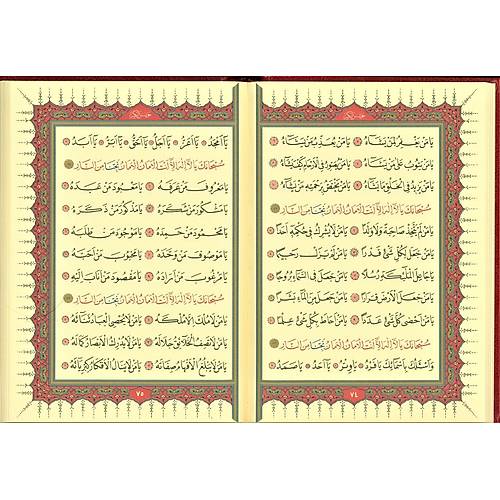 يَا مَنْ يَغْفِرُ لِمَنْ يَشَاءُ يَا مَنْ يُعَذِّبُ مَنْ يَشَاءُ
يَا مَنْ يَتُوبُ عَلَى مَنْ يَشَاءُ يَا مَنْ يُصَوِّرُ فِي الْاَرْحَامِ كَيْفَ يَشَاءُ
يَا مَنْ يَزِيدُ فِي الْخَلْقِ مَا يَشَاءُ يَا مَنْ يَخْتَصُّ بِرَحْمَتِهِ مَنْ يَشَاءُ
سُبْحَانَكَ يَا لَا اِلٰهَ اِلَّا اَنْتَ الْاَمَانُ الْاَمَانُ نَجِّنَا مِنَ النَّارِ
يَا مَنْ لَمْ يَتَّخِذْ صَاحِبَةً وَلَا وَلَدًا يَا مَنْ لَا يُشْرِكُ فِي حُكْمِهِ اَحَدًا
يَا مَنْ جَعَلَ لِكُلِّ شَيْءٍ قَدْرًا يَا مَنْ لَمْ يَزَلْ رَحِيمًا
يَا جَاعِلَ الْمَلٰئِكَةِ رُسُلًا يَا مَنْ جَعَلَ فِي السَّمَاءِ بُرُوجًا
يَا مَنْ جَعَلَ الْاَرْضَ قَرَارًا يَا مَنْ جَعَلَ مِنَ الْمَاءِ بَشَرًا
يَا مَنْ اَحْصٰى كُلَّ شَيْءٍ عَدَدًا يَا مَنْ اَحَاطَ بِكُلِّ شَيْءٍ عِلْمًا
سُبْحَانَكَ يَا لَا اِلٰهَ اِلَّا اَنْتَ الْاَمَانُ الْاَمَانُ نَجِّنَا مِنَ النَّارِ
وَاَسْئَلُكَ بِاَسْمَائِكَ يَا فَرْدُ يَا وِتْرُ يَا اَحَدُ يَا صَمَدُ
٧٤
يَا اَمْجَدُ يَا اَعَزُّ يَا اَجَلُّ يَا اَحَقُّ يَا اَبَرُّ يَا اَبَدُ
سُبْحَانَكَ يَا لَا اِلٰهَ اِلَّا اَنْتَ الْاَمَانُ الْاَمَانُ نَجِّنَا مِنَ النَّارِ
يَا مَعْرُوفَ مَنْ عَرَفَهُ يَا مَعْبُودَ مَنْ عَبَدَهُ
يَا مَشْكُورَ مَنْ شَكَرَهُ يَا مَذْكُورَ مَنْ ذَكَرَهُ
يَا مَحْمُودَ مَنْ حَمِدَهُ يَا مَوْجُودَ مَنْ طَلَبَهُ
يَا مَوْصُوفَ مَنْ وَحَّدَهُ يَا مَحْبُوبَ مَنْ اَحَبَّهُ
يَا مَرْغُوبَ مَنْ اَرَادَهُ يَا مَقْصُودَ مَنْ اَنَابَ اِلَيْهِ
سُبْحَانَكَ يَا لَا اِلٰهَ اِلَّا اَنْتَ الْاَمَانُ الْاَمَانُ نَجِّنَا مِنَ النَّارِ
يَا مَنْ لَا مُلْكَ اِلَّا مُلْكُهُ يَا مَنْ لَا يُحْصِي الْعِبَادُ ثَنَائَهُ
يَا مَنْ لَا تَصِفُ الْخَلَائِقُ جَلَالَهُ يَا مَنْ لَا يُدْرِكُ الْاَبْصَارُ كَمَالَهُ
يَا مَنْ لَا يَبْلُغُ الْاَفْهَامُ صِفَاتَهُ يَا مَنْ لَا يَنَالُ الْاَفْكَارُ كِبْرِيَائَهُ
٧٥